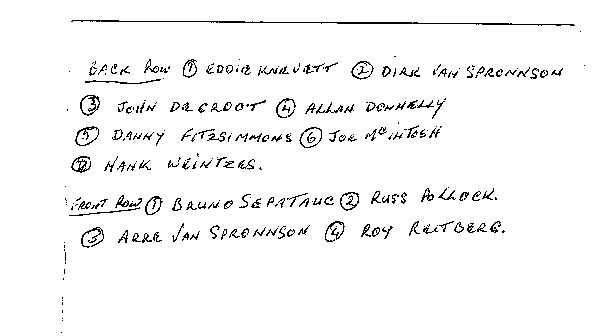 BACK ROW ① EDDIE KNEVETT ② DIRK VAN SPRONNSON
③ JOHN DEGROOT ④ ALLAN DONNELLY
⑤ DANNY FITZSIMMONS ⑥ JOE McINTOSH
⑦ HANK WEINTZES.
FRONT ROW ① BRUNO ② RUSS POLLOCK.
③ ARRE VAN SPRONNSON ④ ROY REITBERG.